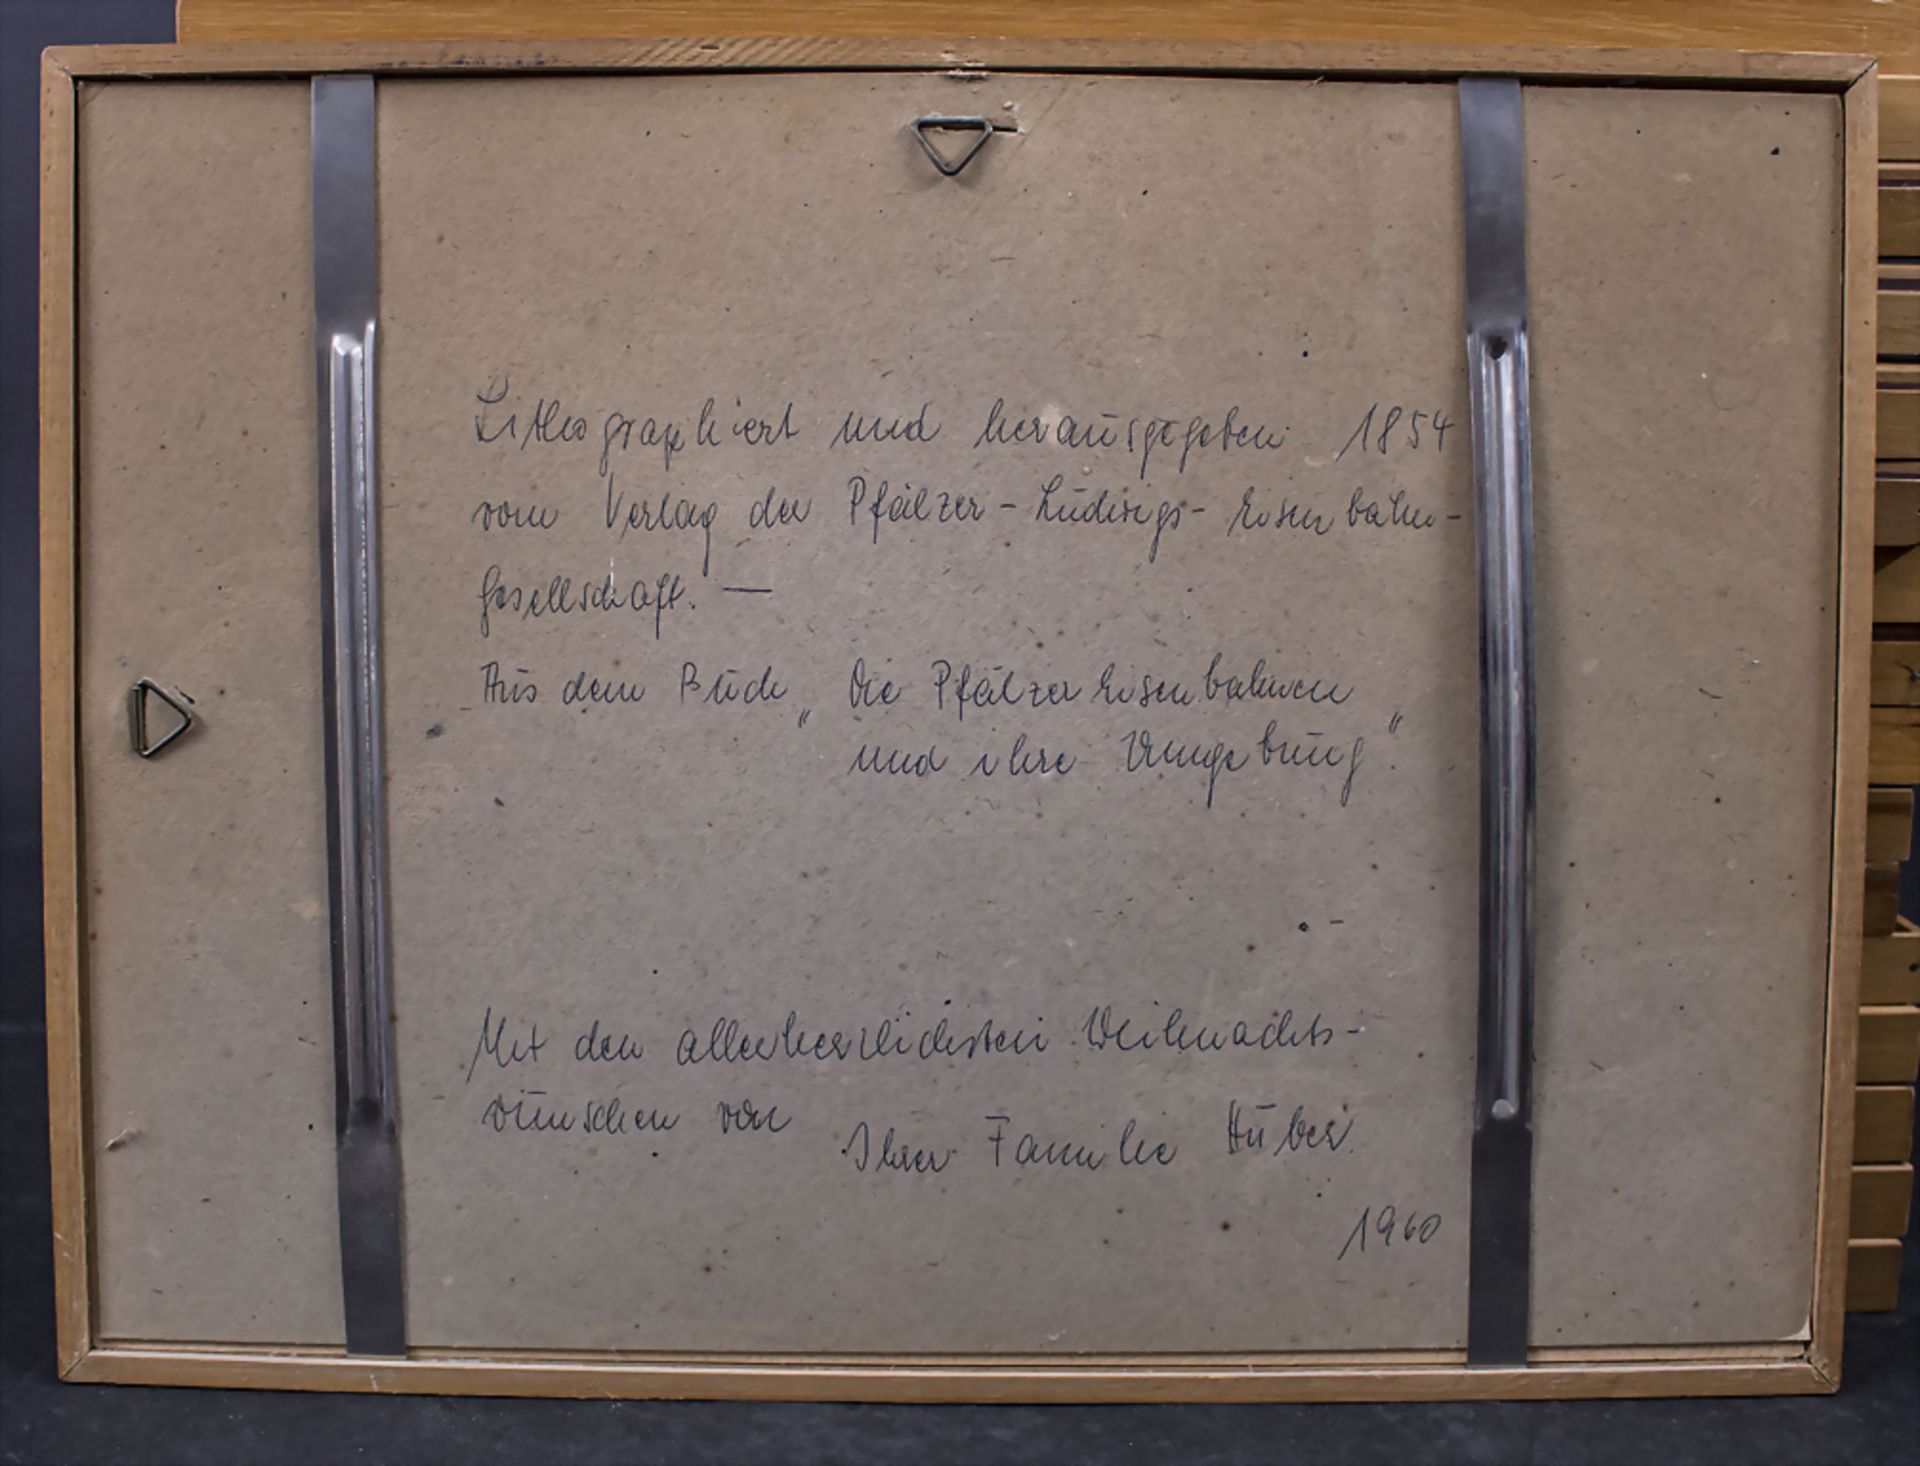 Lithographiert und herausgegeben 1854
vom Verlag der Pfälzer-Ludwigs-Eisenbahn-
Gesellschaft. —
Aus dem Buch „Die Pfälzer Eisenbahnen
und ihre Umgebung".
Mit den allerherzlichsten Weihnachts-
wünschen von
Ihrer Familie Huber.
1960